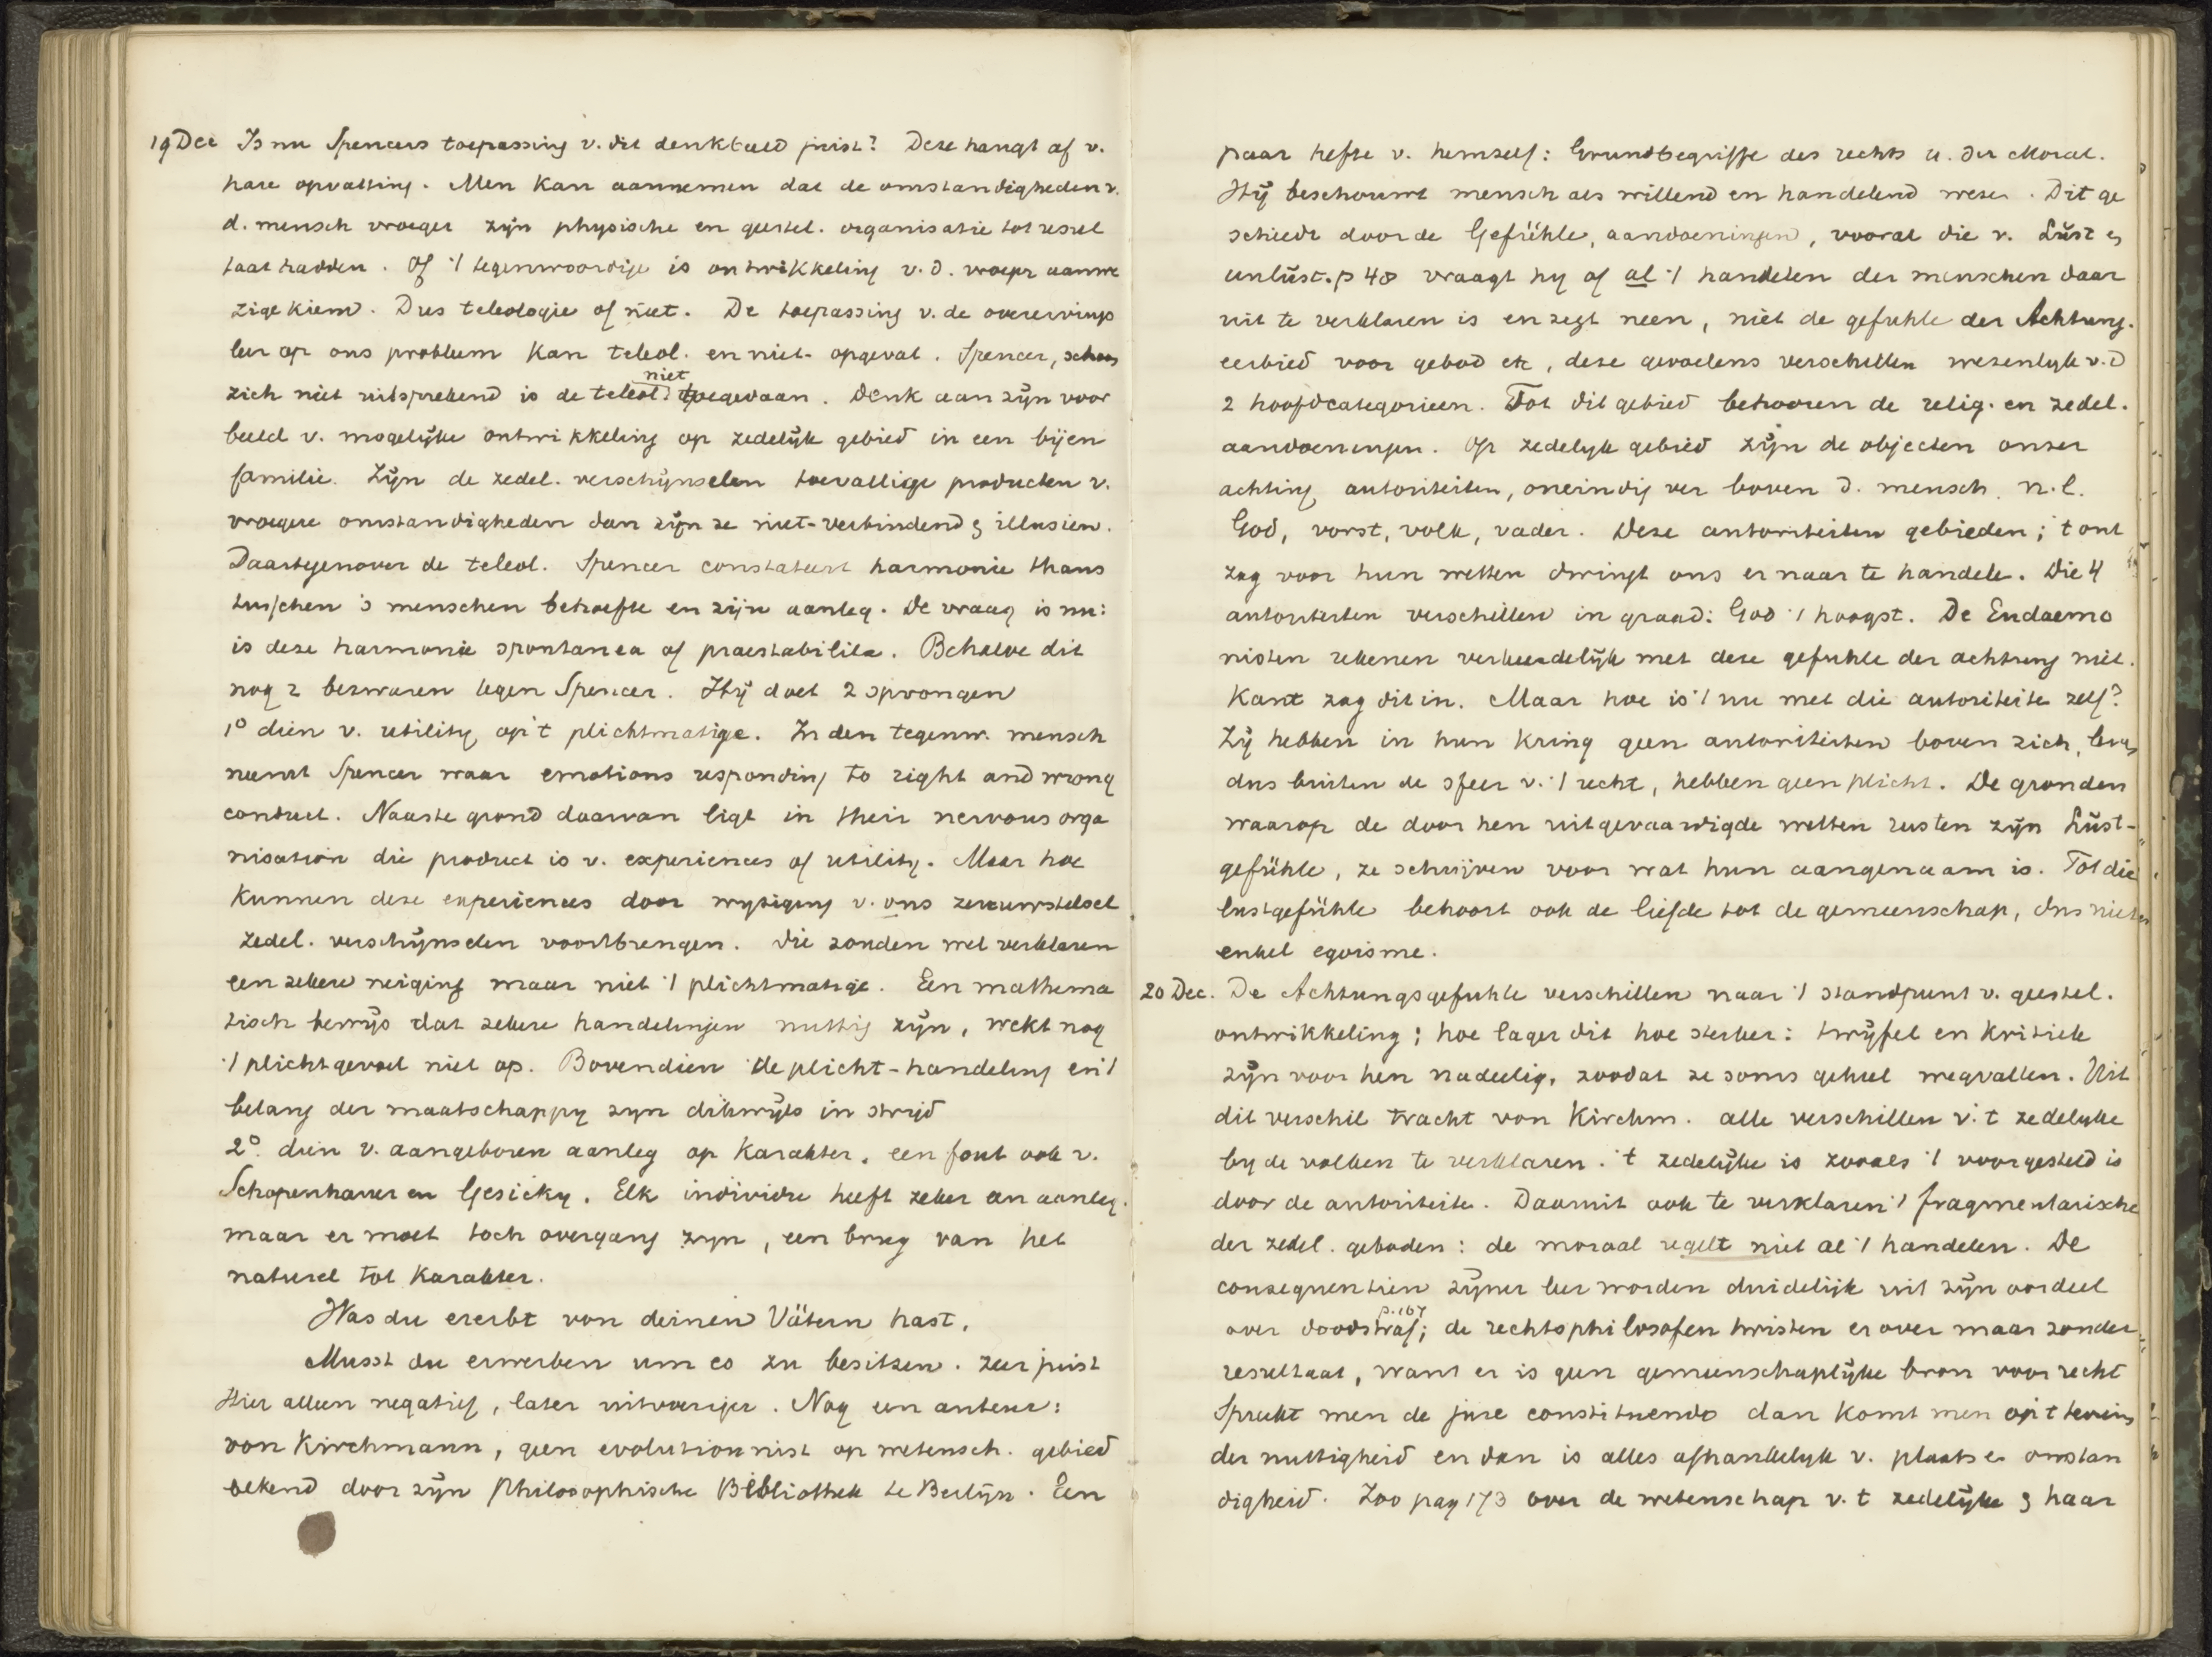 19 Dec Is nu Spencers toepassing v. dit denkbeeld juist? Deze hangt af v.
hare opvatting. Men kan aannemen dat de omstandigheden v.
d. mensch vroeger zijn physische en geestel. organisatie tot resul
taat hadden. Of 't tegenwoordige is ontwikkeling v. d. vroeger aanwe
zige kiem. Dus teleologie of niet. De toepassing v. de overervings
leer op ons probleem kan teleol. en niet- opgevat. Spencer, schoon
zich niet uitsprekend is de teleol. niet toegedaan. Denk aan zijn voor
beeld v. mogelijke ontwikkeling op zedelijk gebied in een bijen
familie. Zijn de zedel. verschijnselen toevallige producten v.
vroegere omstandigheden dan zijn ze niet-verbindend & illusien.
Daartegenover de teleol. Spencer constateert harmonie thans
tusschen 's menschen behoefte en zijn aanleg. De vraag is nu:
is deze harmonie spontanea of praestabilita. Behalve dit
nog 2 bezwaren tegen Spencer. Hij doet 2 sprongen
1° dien v. utility op 't plichtmatige. In den tegenw. mensch
neemt Spencer waar emotions responding to right and wrong
conduct. Naaste grond daarvan ligt in their nervous orga
nisation die product is v. experiences of utility. Maar hoe
kunnen deze experiences door wijziging v. ons zenuwstelsel
zedel. verschijnselen voortbrengen. Die zouden wel verklaren
een zekere neiging maar niet 't plichtmatige. Een mathema
tisch bewijs dat zekere handelingen nuttig zijn, wekt nog
't plichtgevoel niet op. Bovendien de plicht-handeling en 't
belang der maatschappy zyn dikwijls in strijd
2°. dien v. aangeboren aanleg op karakter, een fout ook v.
Schopenhauer en Gesicky. Elk individu heeft zeker een aanleg.
maar er moet toch overgang zyn, een brug van het
naturel tot karakter.
Was du ererbt von deinen Vätern hast,
Musst du erwerben um es zu besitzen. zeer juist
Hier alleen negatief, later uitvoeriger. Nog een auteur:
von Kirchmann, geen evolutionnist op wetensch. gebied
bekend door zijn Philosophische Bibliothek te Berlijn. Een
paar hefte v. hemself: Grundbegriffe des rechts u. der Moral.
Hij beschouwt mensch als willend en handelend wezen. Dit ge
schiedt door de Gefühle, aandoeningen, vooral die v. Lust en
unlust. p 48 vraagt hy of al 't handelen der menschen daar
uit te verklaren is en zegt neen, niet de gefuhle der Achtung.
eerbied voor gebod etc, deze gevoelens verschillen wezenlyk v. d
2 hoofdcategorieen. Tot dit gebied behooren de relig. en zedel.
aandoeningen. Op zedelyk gebied zijn de objecten onzer
achting autoriteiten, oneindig ver boven d. mensch. n.l.
God, vorst, volk, vader. Deze autoriteiten gebieden; 't ont
zag voor hun wetten dwingt ons er naar te handele. Die 4
autoriteiten verschillen in graad: God 't hoogst. De Eudaemo
nisten rekenen verkeerdelijk met deze gefuhle der achtung niet.
Kant zag dit in. Maar hoe is 't nu met die autoriteite zelf?
Zij hebben in hun kring geen autoriteiten boven zich,
dus buiten de sfeer v. 't recht, hebben geen plicht. De gronden
waarop de door hen uitgevaardigde wetten rusten zijn Lust-
gefühle, ze schrijven voor wat hun aangenaam is. Tot die
lustgefühle behoort ook de liefde tot de gemeenschap, dus niet
enkel egoisme.
20 Dec. De Achtungsgefuhle verschillen naar 't standpunt v. geestel.
ontwikkeling; hoe lager dit hoe sterker: twijfel en kritiek
zijn voor hen nadeelig, zoodat ze soms geheel wegvallen. Uit
dit verschil tracht von Kirchm. alle verschillen v. 't zedelyke
by de volken te verklaren. 't zedelijke is zooals 't voorgesteld is
door de autoriteite. Daaruit ook te verklaren 't fragmentarische
der zedel. geboden: de moraal regelt niet al 't handelen. De
consequentien zijner leer worden duidelijk uit zijn oordeel
over doodstraf; p. 167 de rechtsphilosofen twisten er over maar zonder
resultaat, want er is geen gemeenschaplijke bron voor recht
Spreekt men de jure constituendo dan komt men op 't terrein
der nuttigheid en dan is alles afhankelyk v. plaats en omstan
digheid. Zoo pag 173 over de wetenschap v. 't zedelijke & haar